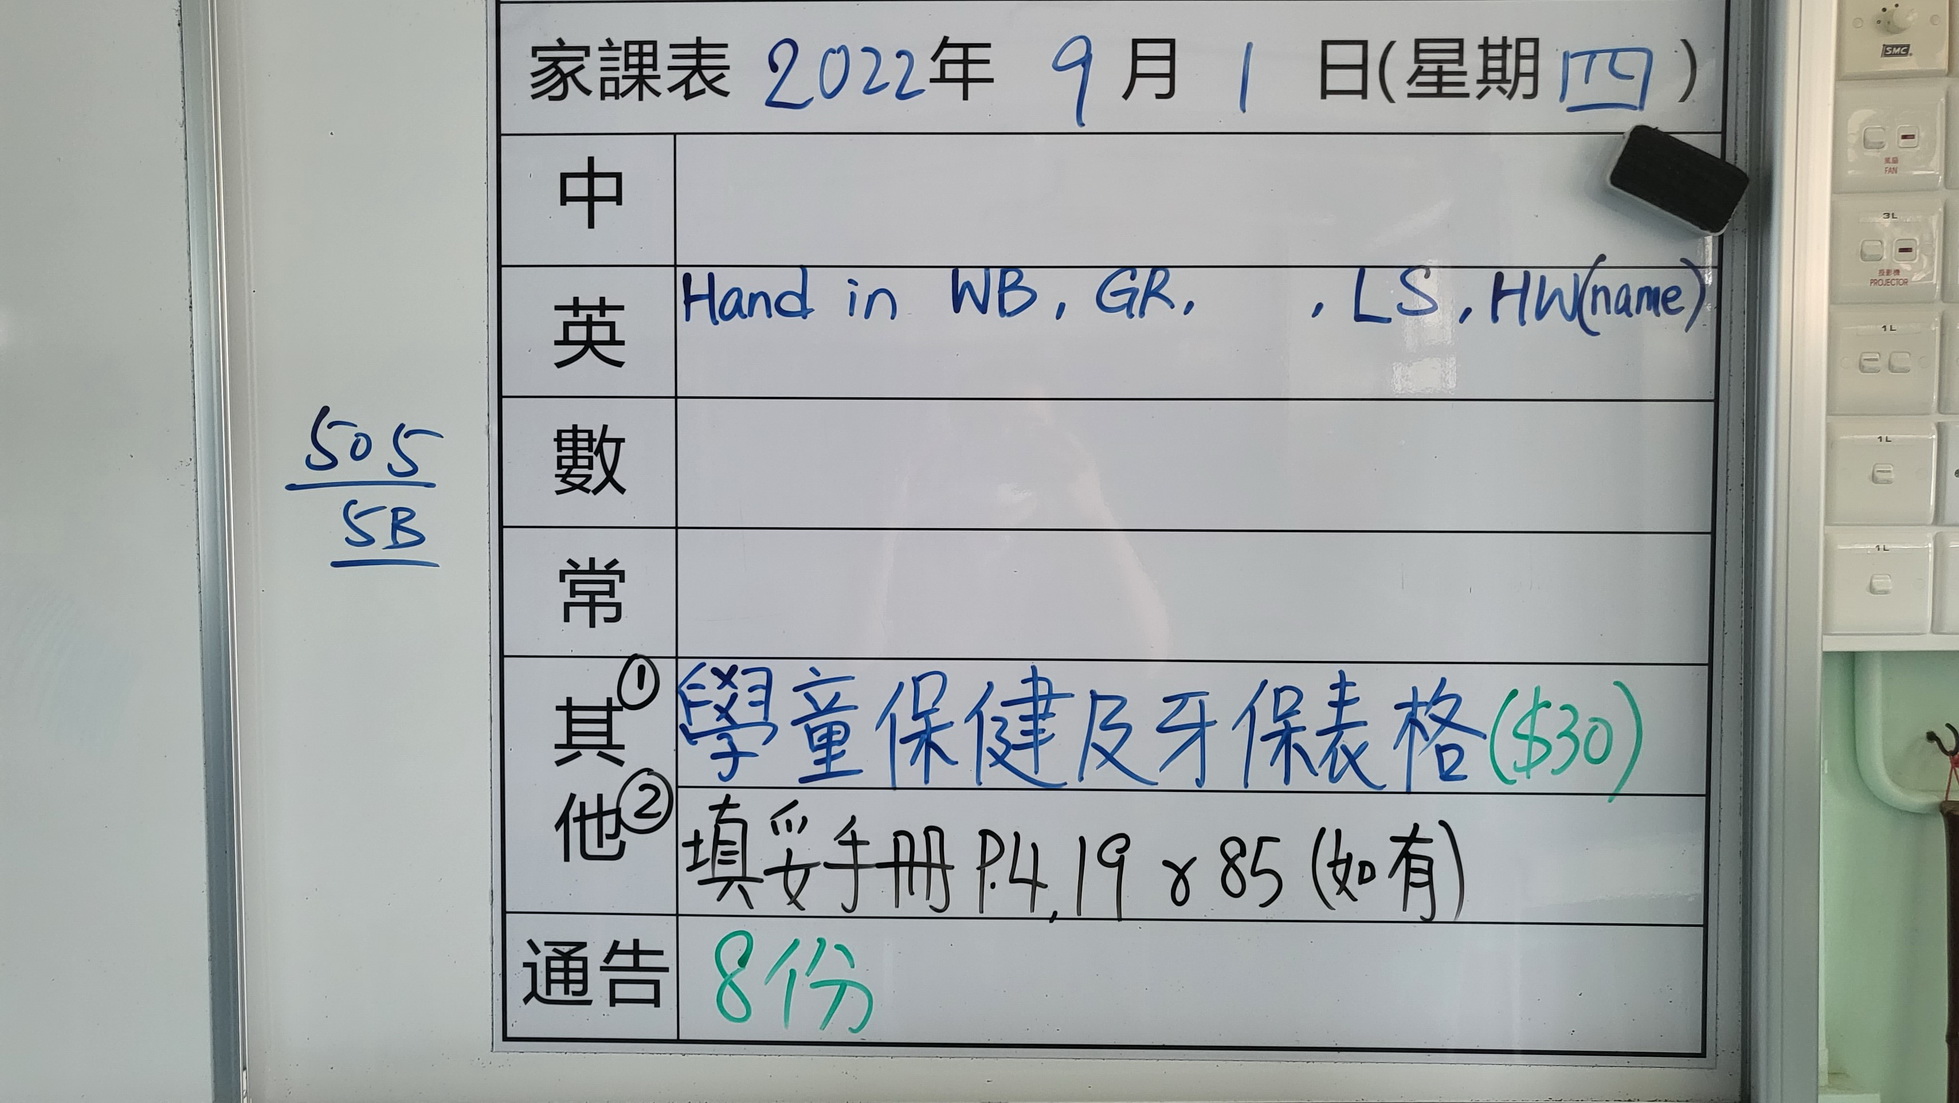 家課表 2022年 9月 1日(星期四)
中
英 Hand in WB, GR, , LS, HW(name)
數
常
505
5B
其他
① 學童保健及牙保表格($30)
② 填妥手冊 P.4, 19 & 85 (如有)
通告 8份
SMC
風扇
FAN
3L
投影機
PROJECTOR
1L
1L
1L